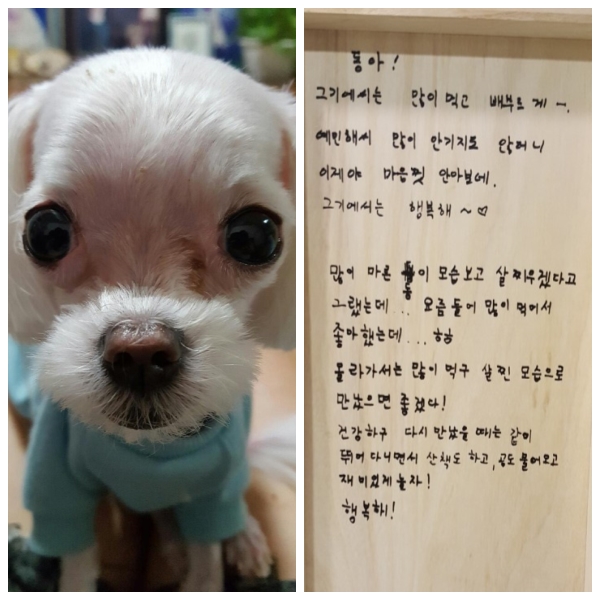 퐁아!
그기에서는 많이 먹고 배부르게ㅡ.
예민해서 많이 안기지도 않더니
이제야 마음껏 안아보네.
그기에서는 행복해~♡
많이 마른 퐁이 모습보고 살찌우겠다고
그랬는데... 요즘들어 많이 먹어서
좋아했는데... ㅎㅎ
올라가서는 많이 먹구 살찐 모습으로
만났으면 좋겠다!
건강하구 다시 만났을 때는 같이
뛰어 다니면서 산책도 하고, 공도 물어오고
재미있게 놀자!
행복해!